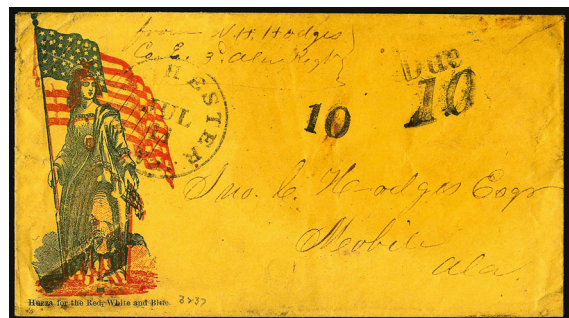 from N. H. Hodges
Co. E. 3. Ala Regt
CHESTER
JUL
Due
10
10
Jno. C. Hodges Esqr
Mobile
Ala.
Huzza for the Red, White and Blue.
3237